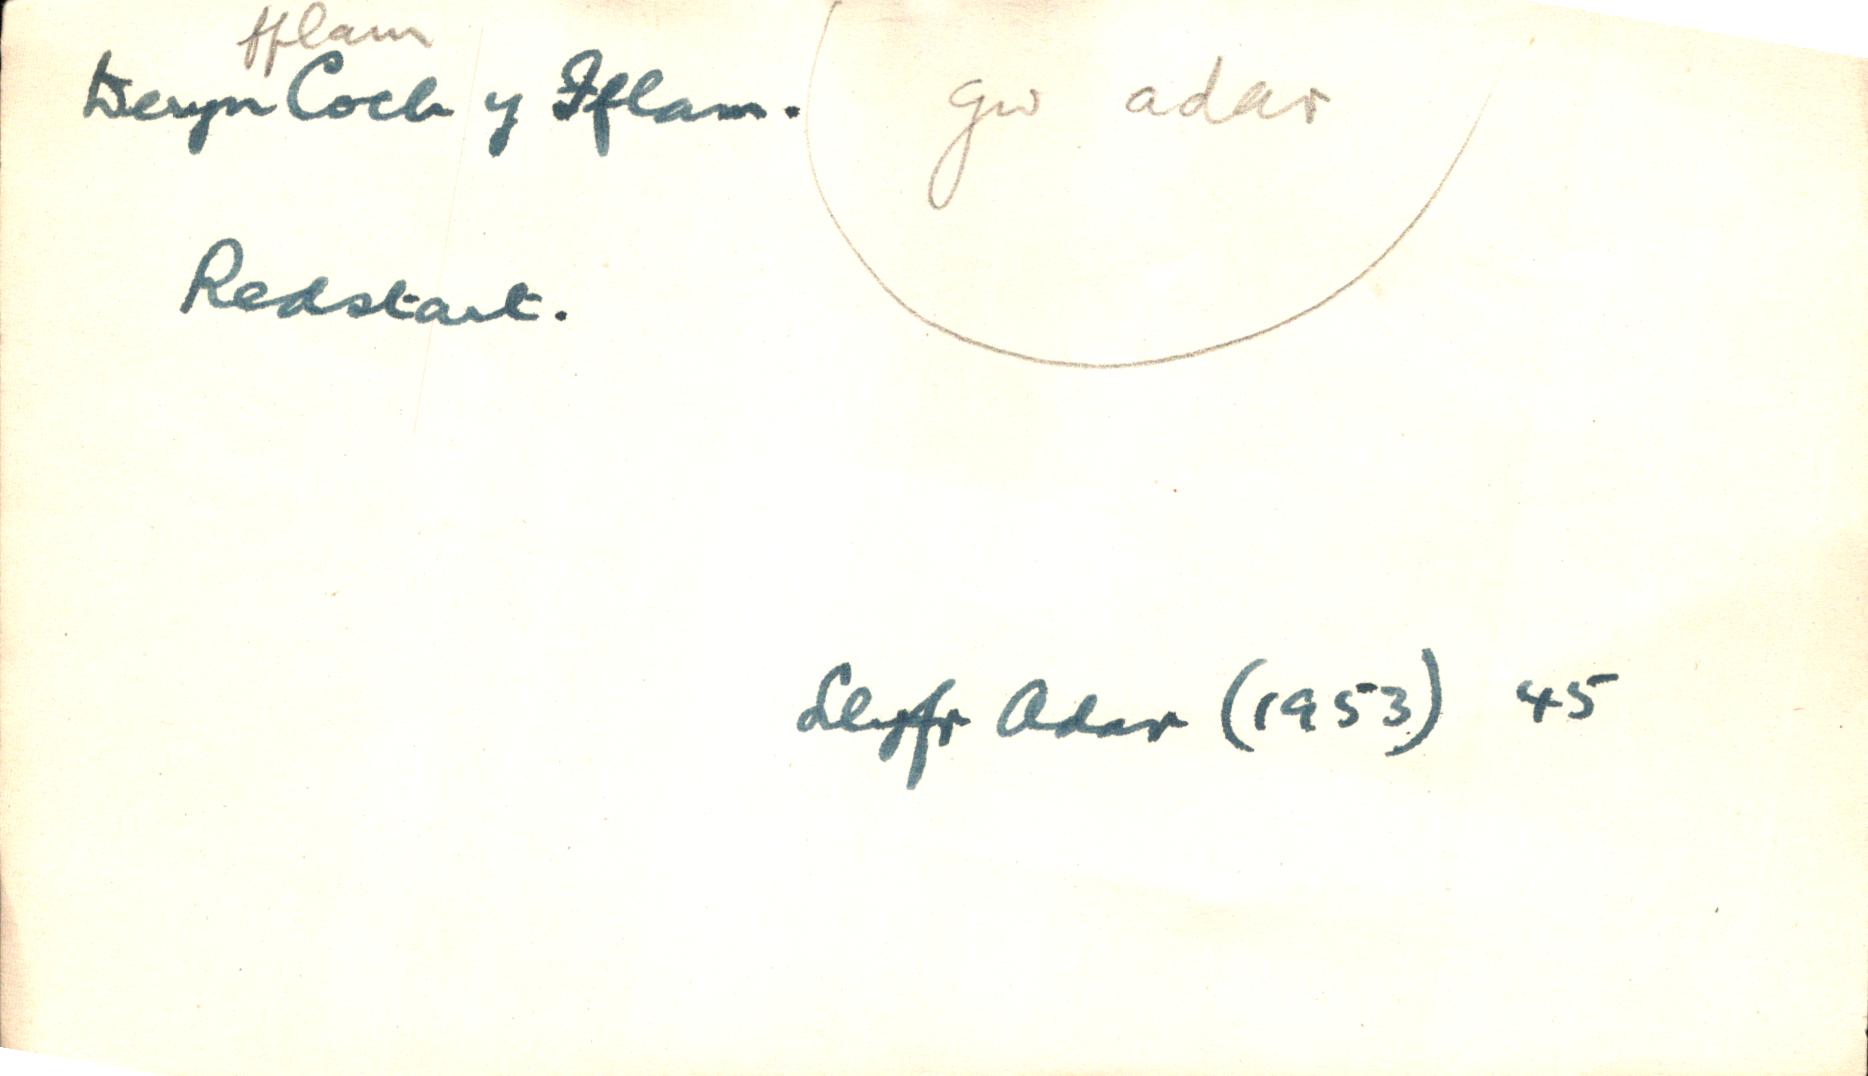 fflam
Deryn Coch y Fflam. gw adar
Redstart.
Llyfr Adar (1953) 45